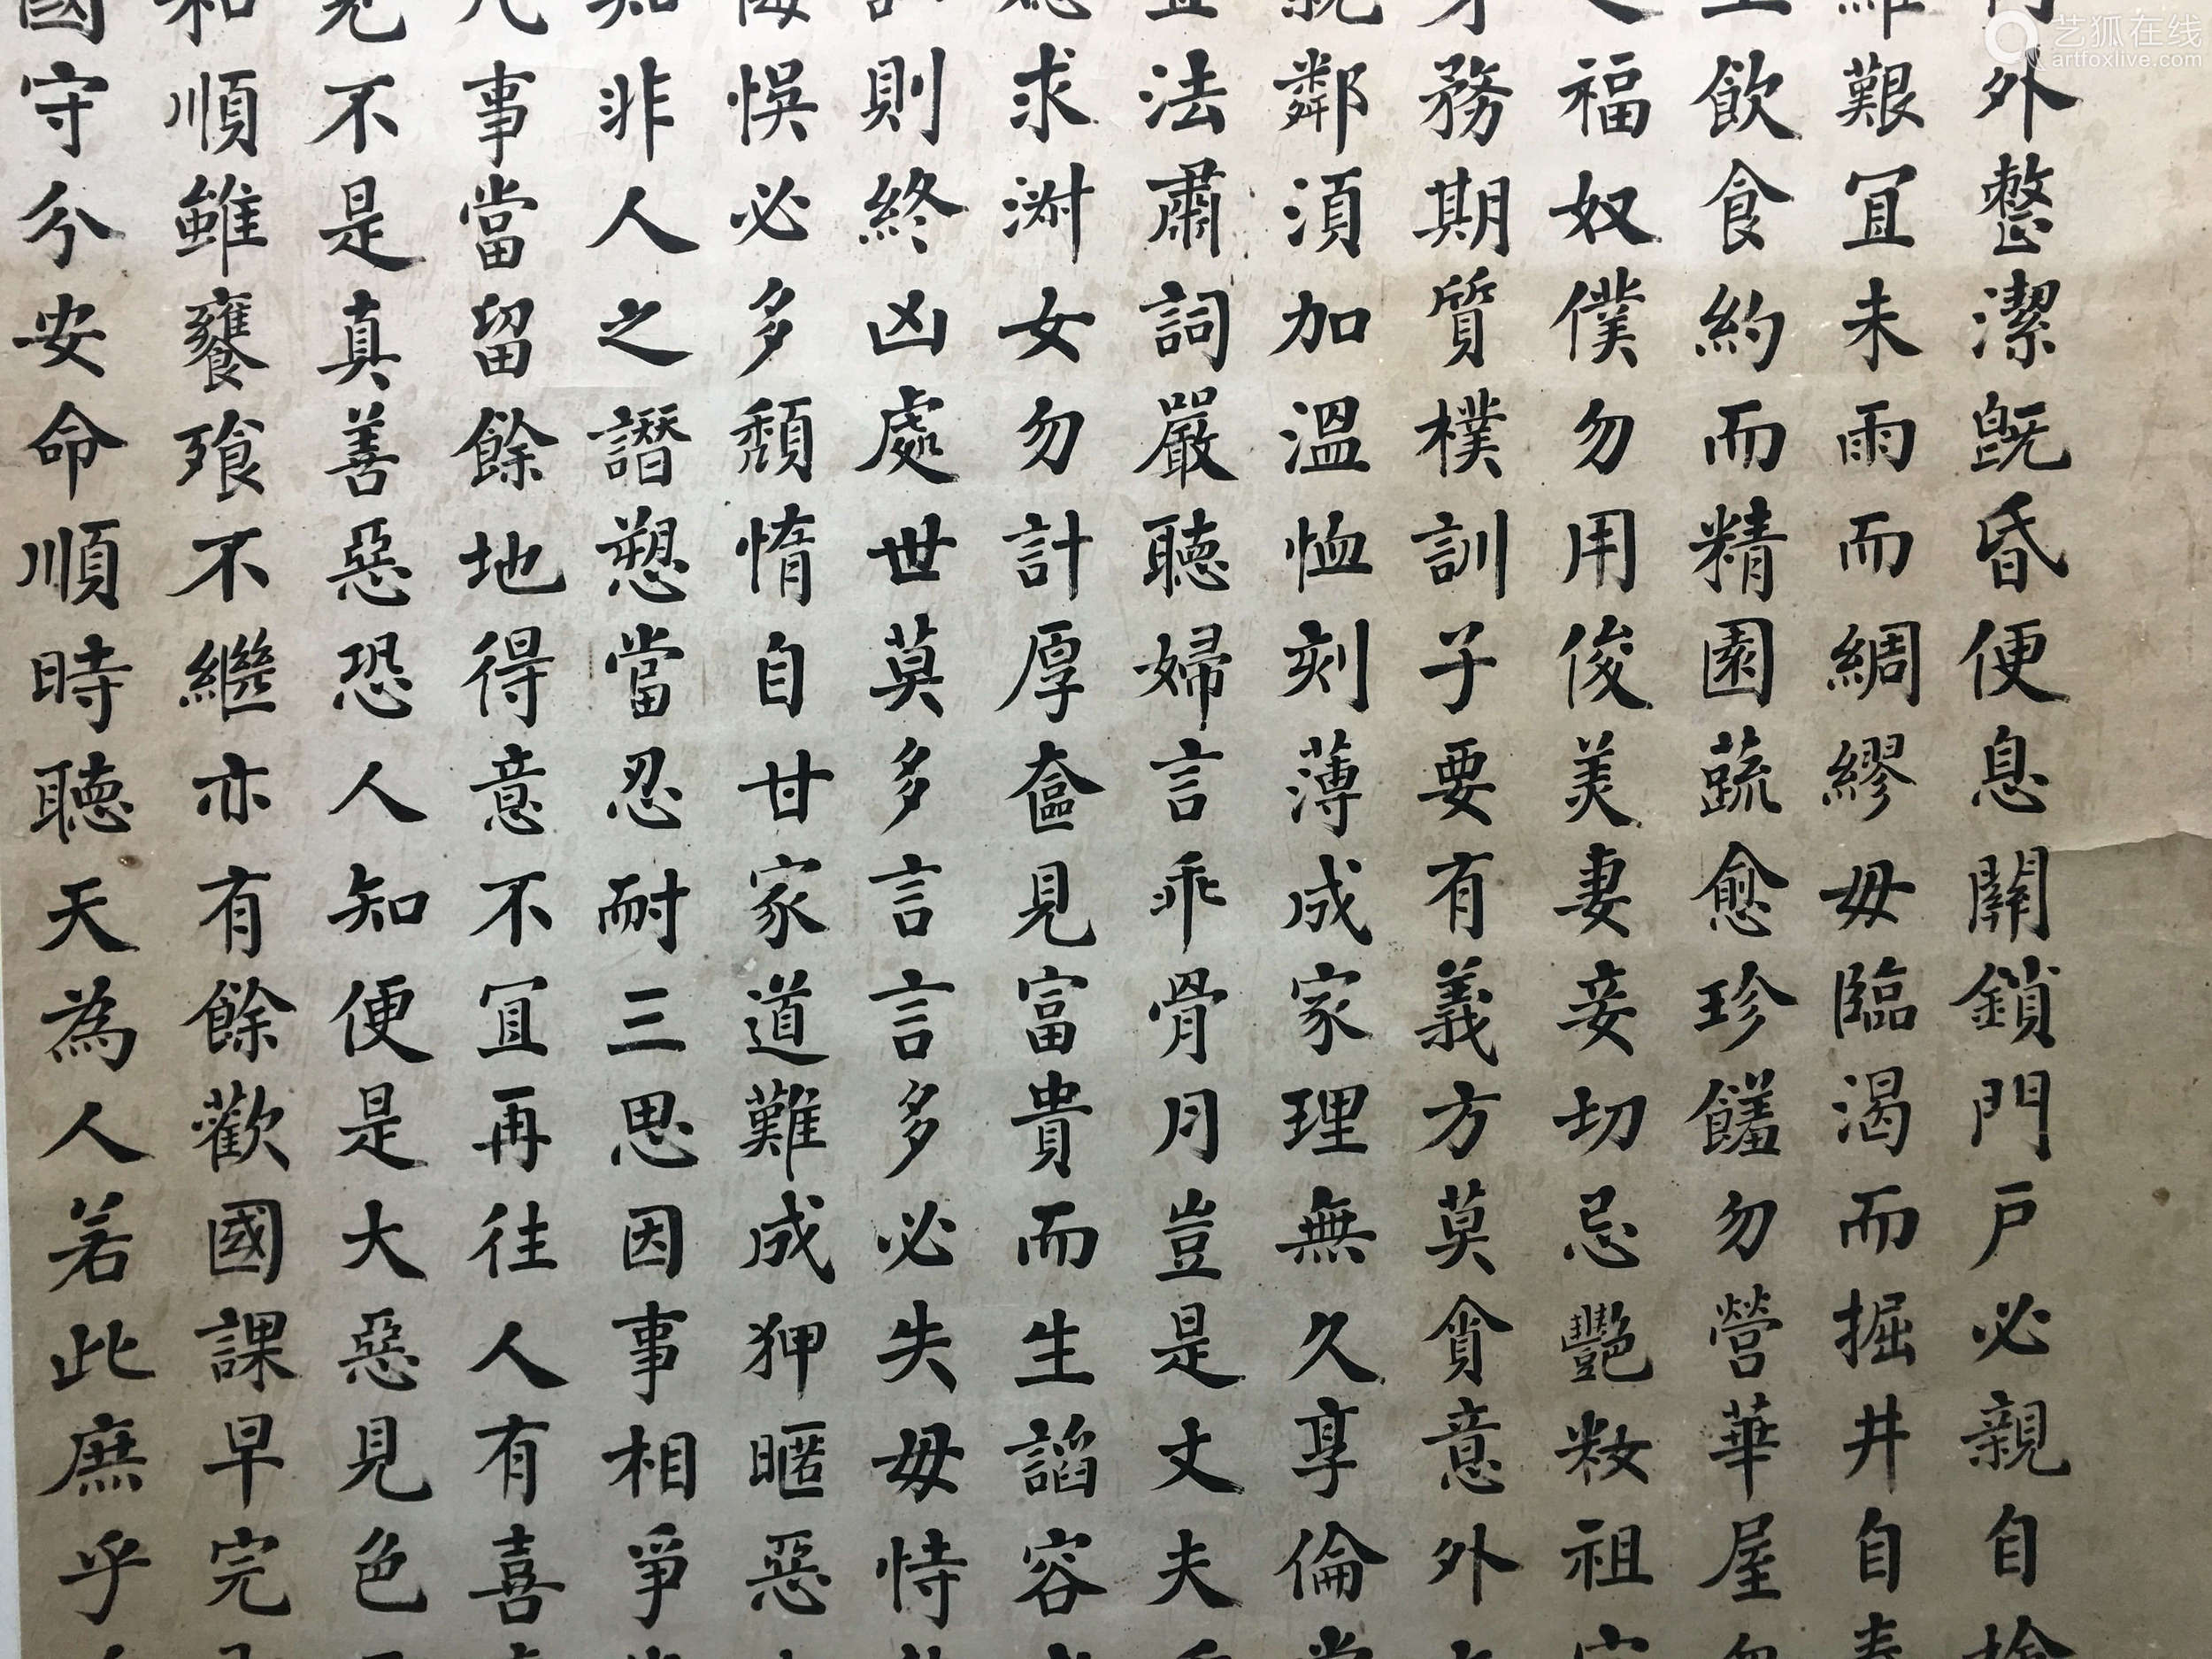 外整潔既昏便息關鎖門戶必親自檢
維艱宜未雨而綢繆毋臨渴而掘井自奉
飲食約而精園蔬愈珍饈勿營華屋勿
福奴僕勿用俊美妻妾切忌艷妝祖宗
務期質樸訓子要有義方莫貪意外
親鄰須加溫恤刻薄成家理無久享倫常
宜法肅詞嚴聽婦言乖骨月豈是丈夫重
求淑女勿計厚奩見富貴而生諂容
訟則終凶處世莫多言言多必失毋恃
悔悞必多頹惰自甘家道難成狎暱惡
知非人之譖愬當忍耐三思因事相爭
凡事當留餘地得意不宜再往人有喜
見不是真善惡恐人知便是大惡見色
和順雖饔飧不繼亦有餘歡國課早完
國守分安命順時聽天為人若此庶乎
艺狐在线
artfoxlive.com